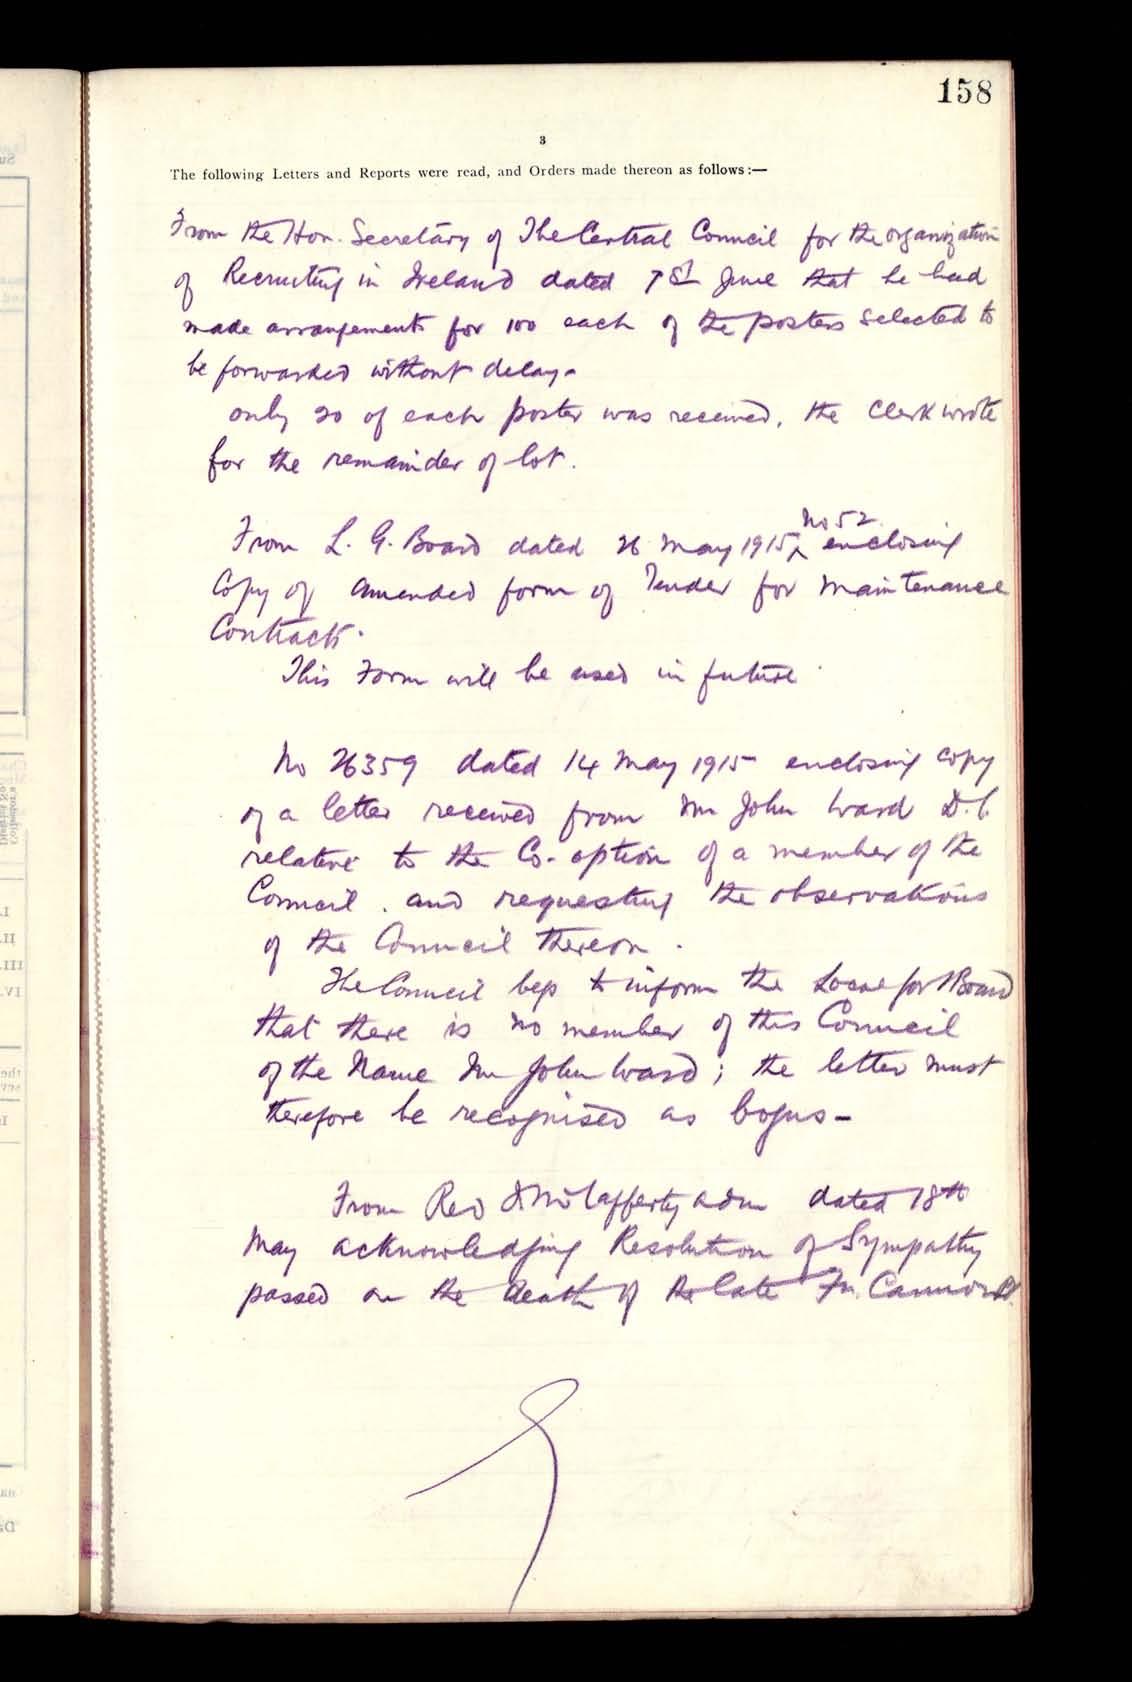 158
3
The following Letters and Reports were read, and Orders made thereon as follows:—
From the Hon. Secretary of The Central Council for the organization
of Recruiting in Ireland dated 1st June that he had
made arrangements for 100 each of the posters selected to
be forwarded without delay-
only 20 of each poster was received, the Clerk wrote
for the remainder of lot.
From L. G. Board dated 26 May 1915, No 52 enclosing
Copy of amended form of Tender for Maintenance
Contracts.
This Form will be used in future.
No 26359 dated 14 May 1915 enclosing copy
of a letter received from Mr John Ward D.C.
relative to the Co-option of a member of the
Council. and requesting the observations
of the Council thereon.
The Council begs to inform the Local Govt Board
that there is no member of this Council
of the Name Mr John Ward; the letter must
therefore be recognised as bogus-
From Rev McCafferty Adm dated 18th
May acknowledging Resolution of Sympathy
passed on the death of the late Fr. Cannon